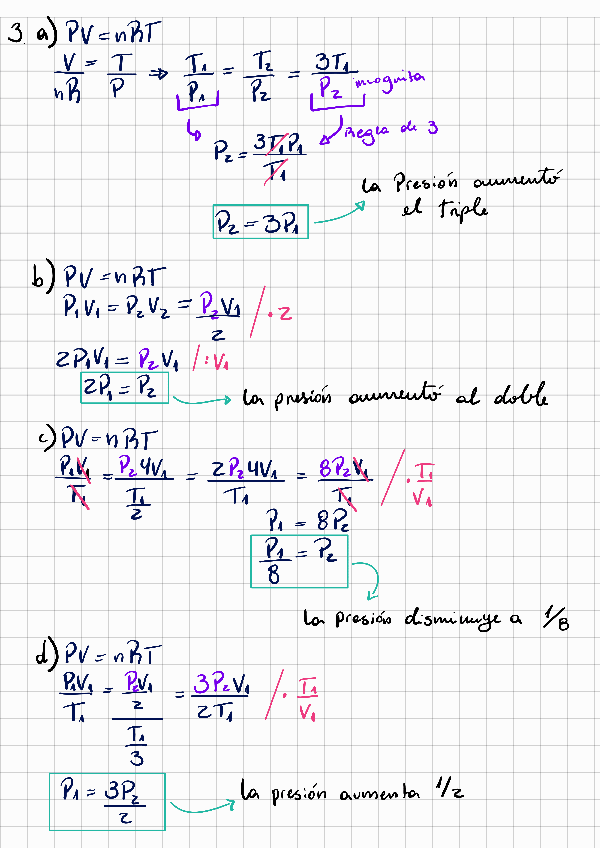 3. a) PV = nRT
V/nR = T/P ⇒ T₁/P₁ = T₂/P₂ = 3T₁/P₂ incognita
Regla de 3
P₂ = 3T₁P₁/T₁
la Presión aumentó
el triple
P₂ = 3P₁
b) PV = nRT
P₁V₁ = P₂V₂ = P₂V₁/2 / · 2
2P₁V₁ = P₂V₁ / : V₁
2P₁ = P₂
la presión aumentó al doble
c) PV = nRT
P₁V₁/T₁ = P₂4V₁/(T₁/2) = 2P₂4V₁/T₁ = 8P₂V₁/T₁ / · T₁/V₁
P₁ = 8P₂
P₁/8 = P₂
la presión disminuye a 1/8
d) PV = nRT
P₁V₁/T₁ = (P₂V₁/2)/(T₁/3) = 3P₂V₁/2T₁ / · T₁/V₁
P₁ = 3P₂/2
la presión aumenta 1/2